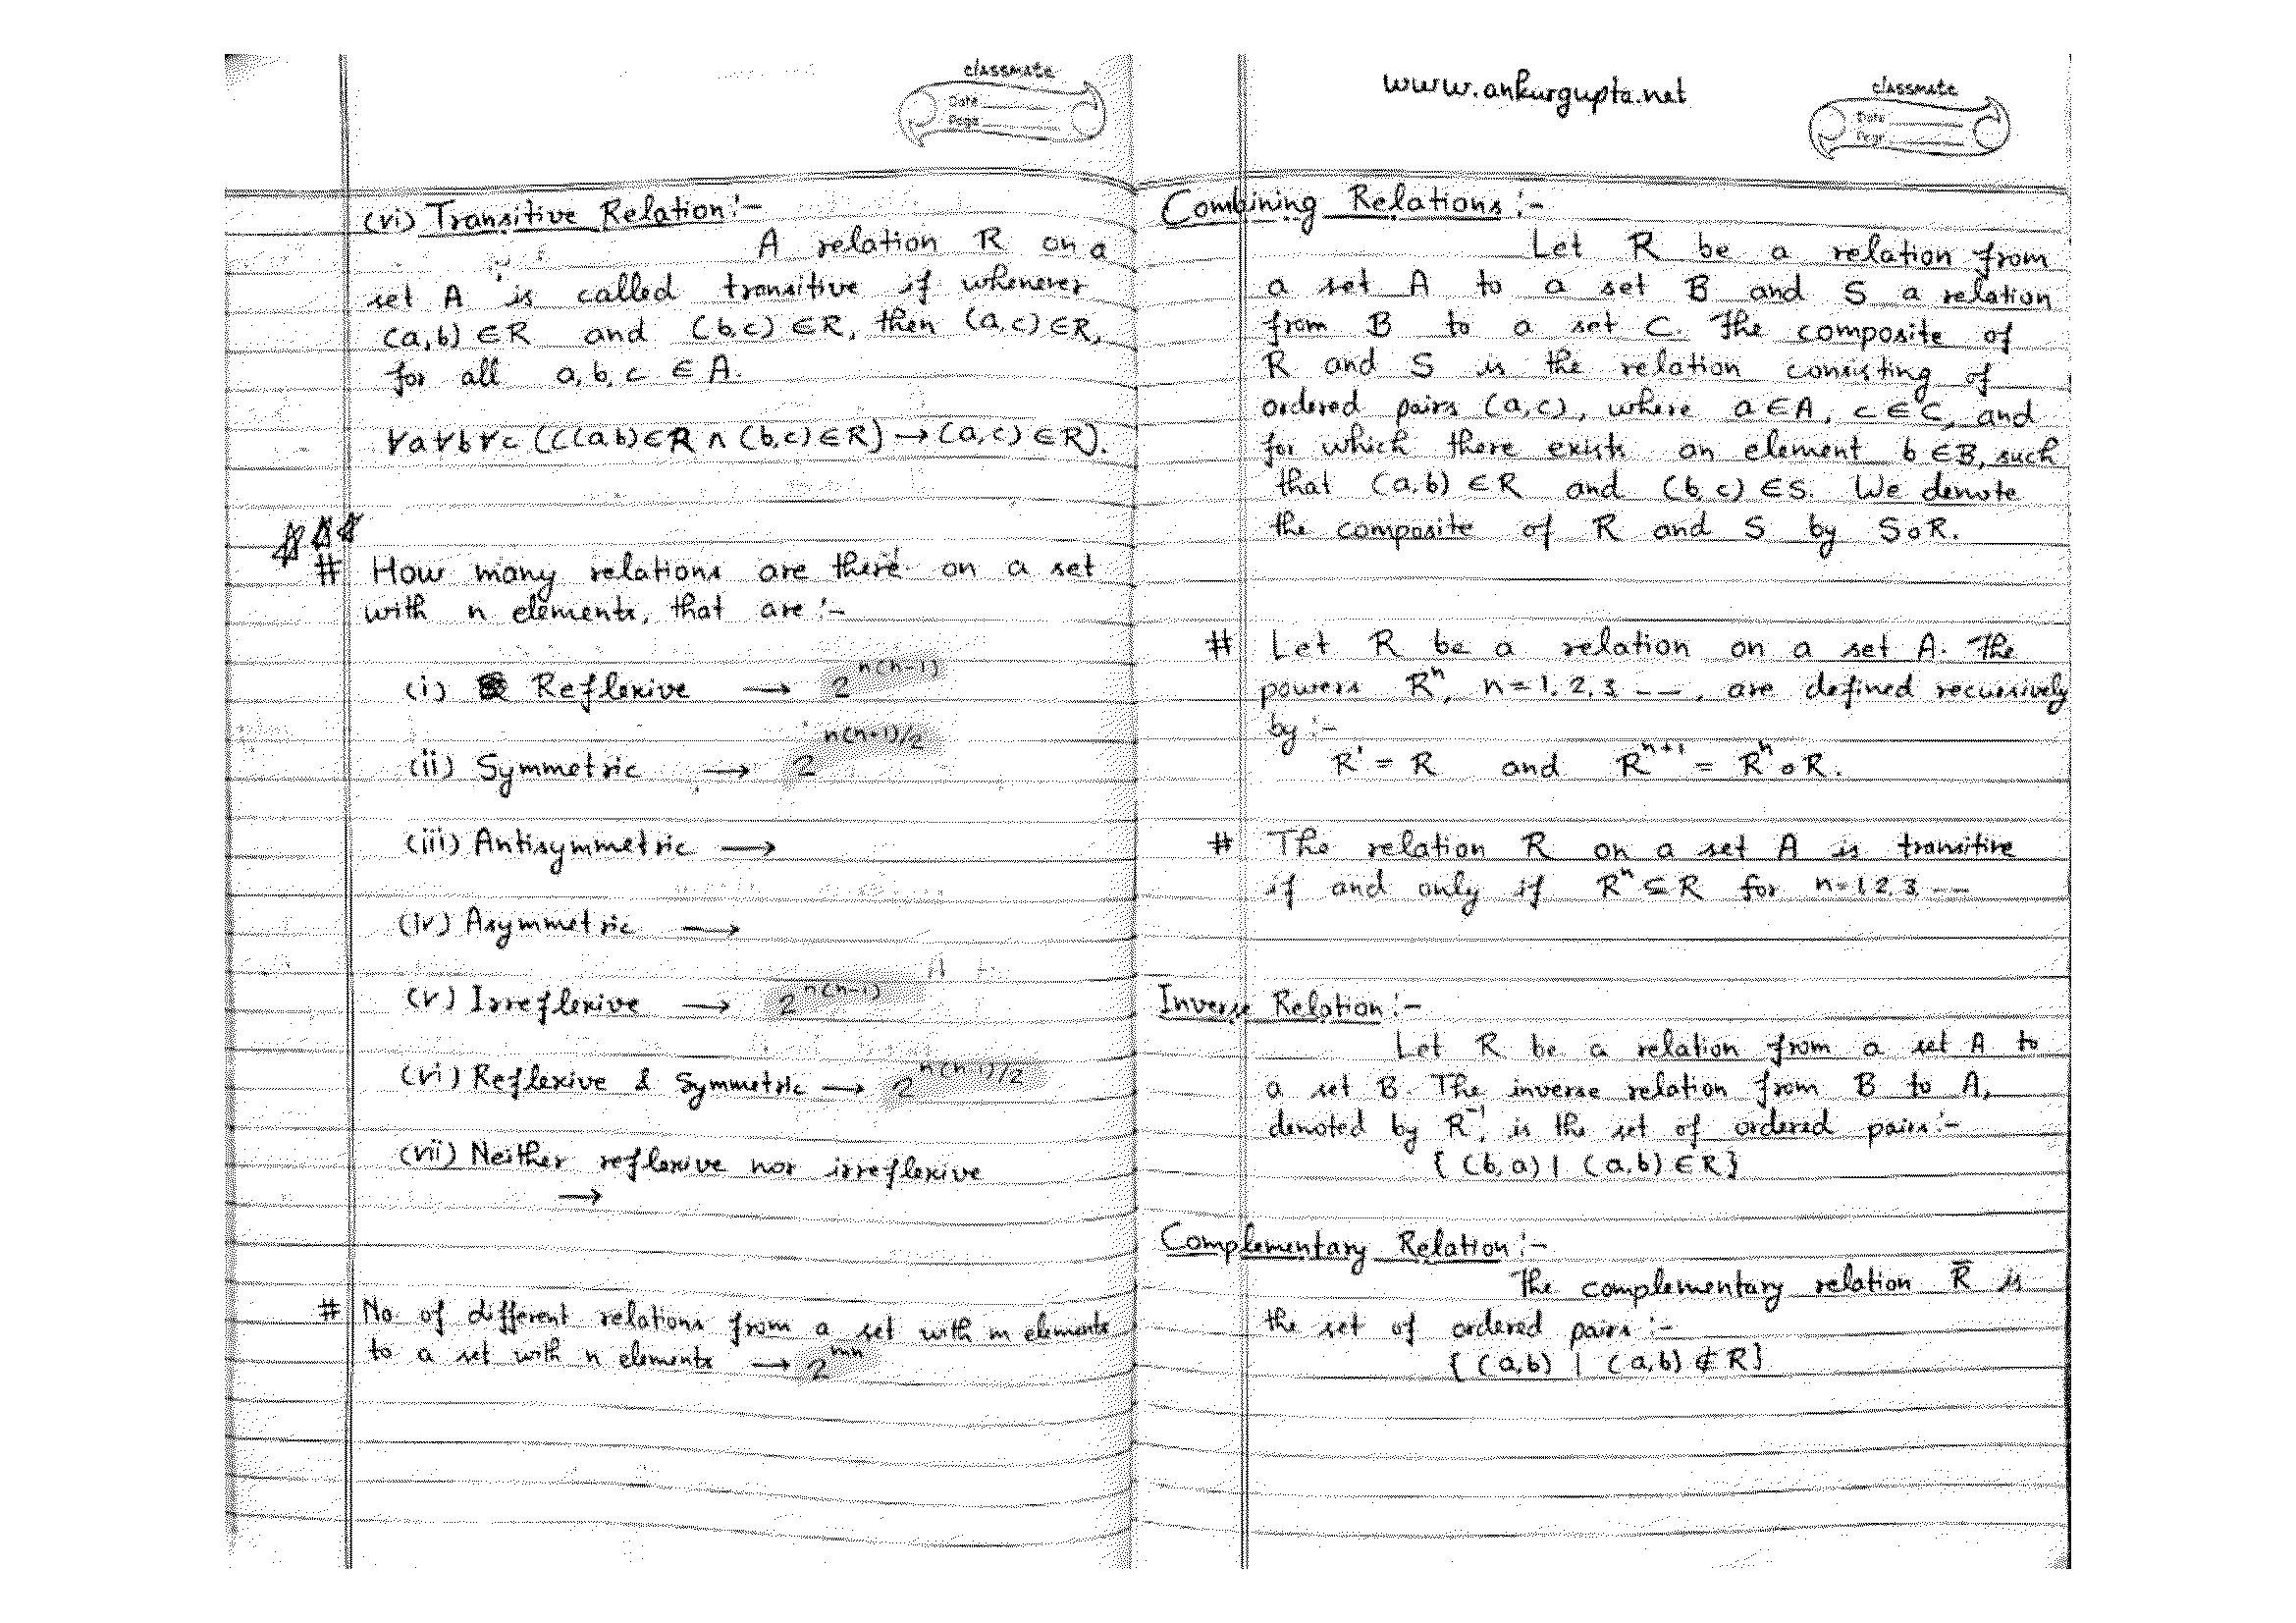 classmate
Date
Page
(vi) Transitive Relation:-
A relation R on a
set A is called transitive if whenever
(a,b) ∈ R and (b,c) ∈ R, then (a,c) ∈ R,
for all a, b, c ∈ A.
∀a∀b∀c (((a,b)∈R ∧ (b,c)∈R) → (a,c) ∈ R).
☆☆☆
# How many relations are there on a set
with n elements, that are :-
(i) Reflexive → 2^n(n-1)
(ii) Symmetric → 2^n(n+1)/2
(iii) Antisymmetric →
(iv) Asymmetric →
(v) Irreflexive → 2^n(n-1)
(vi) Reflexive & Symmetric → 2^n(n-1)/2
(vii) Neither reflexive nor irreflexive
→
# No. of different relations from a set with m elements
to a set with n elements → 2^mn
www.ankurgupta.net
classmate
Date
Page
Combining Relations :-
Let R be a relation from
a set A to a set B and S a relation
from B to a set C. The composite of
R and S is the relation consisting of
ordered pairs (a,c), where a ∈ A, c ∈ C, and
for which there exists an element b ∈ B, such
that (a,b) ∈ R and (b,c) ∈ S. We denote
the composite of R and S by S∘R.
# Let R be a relation on a set A. The
powers Rⁿ, n = 1, 2, 3 ---, are defined recursively
by :-
R¹ = R and Rⁿ⁺¹ = Rⁿ∘R.
# The relation R on a set A is transitive
if and only if Rⁿ ⊆ R for n=1,2,3,---
Inverse Relation:-
Let R be a relation from a set A to
a set B. The inverse relation from B to A,
denoted by R⁻¹, is the set of ordered pairs:-
{ (b,a) | (a,b) ∈ R }
Complementary Relation:-
The complementary relation R̅ is
the set of ordered pairs:-
{ (a,b) | (a,b) ∉ R }